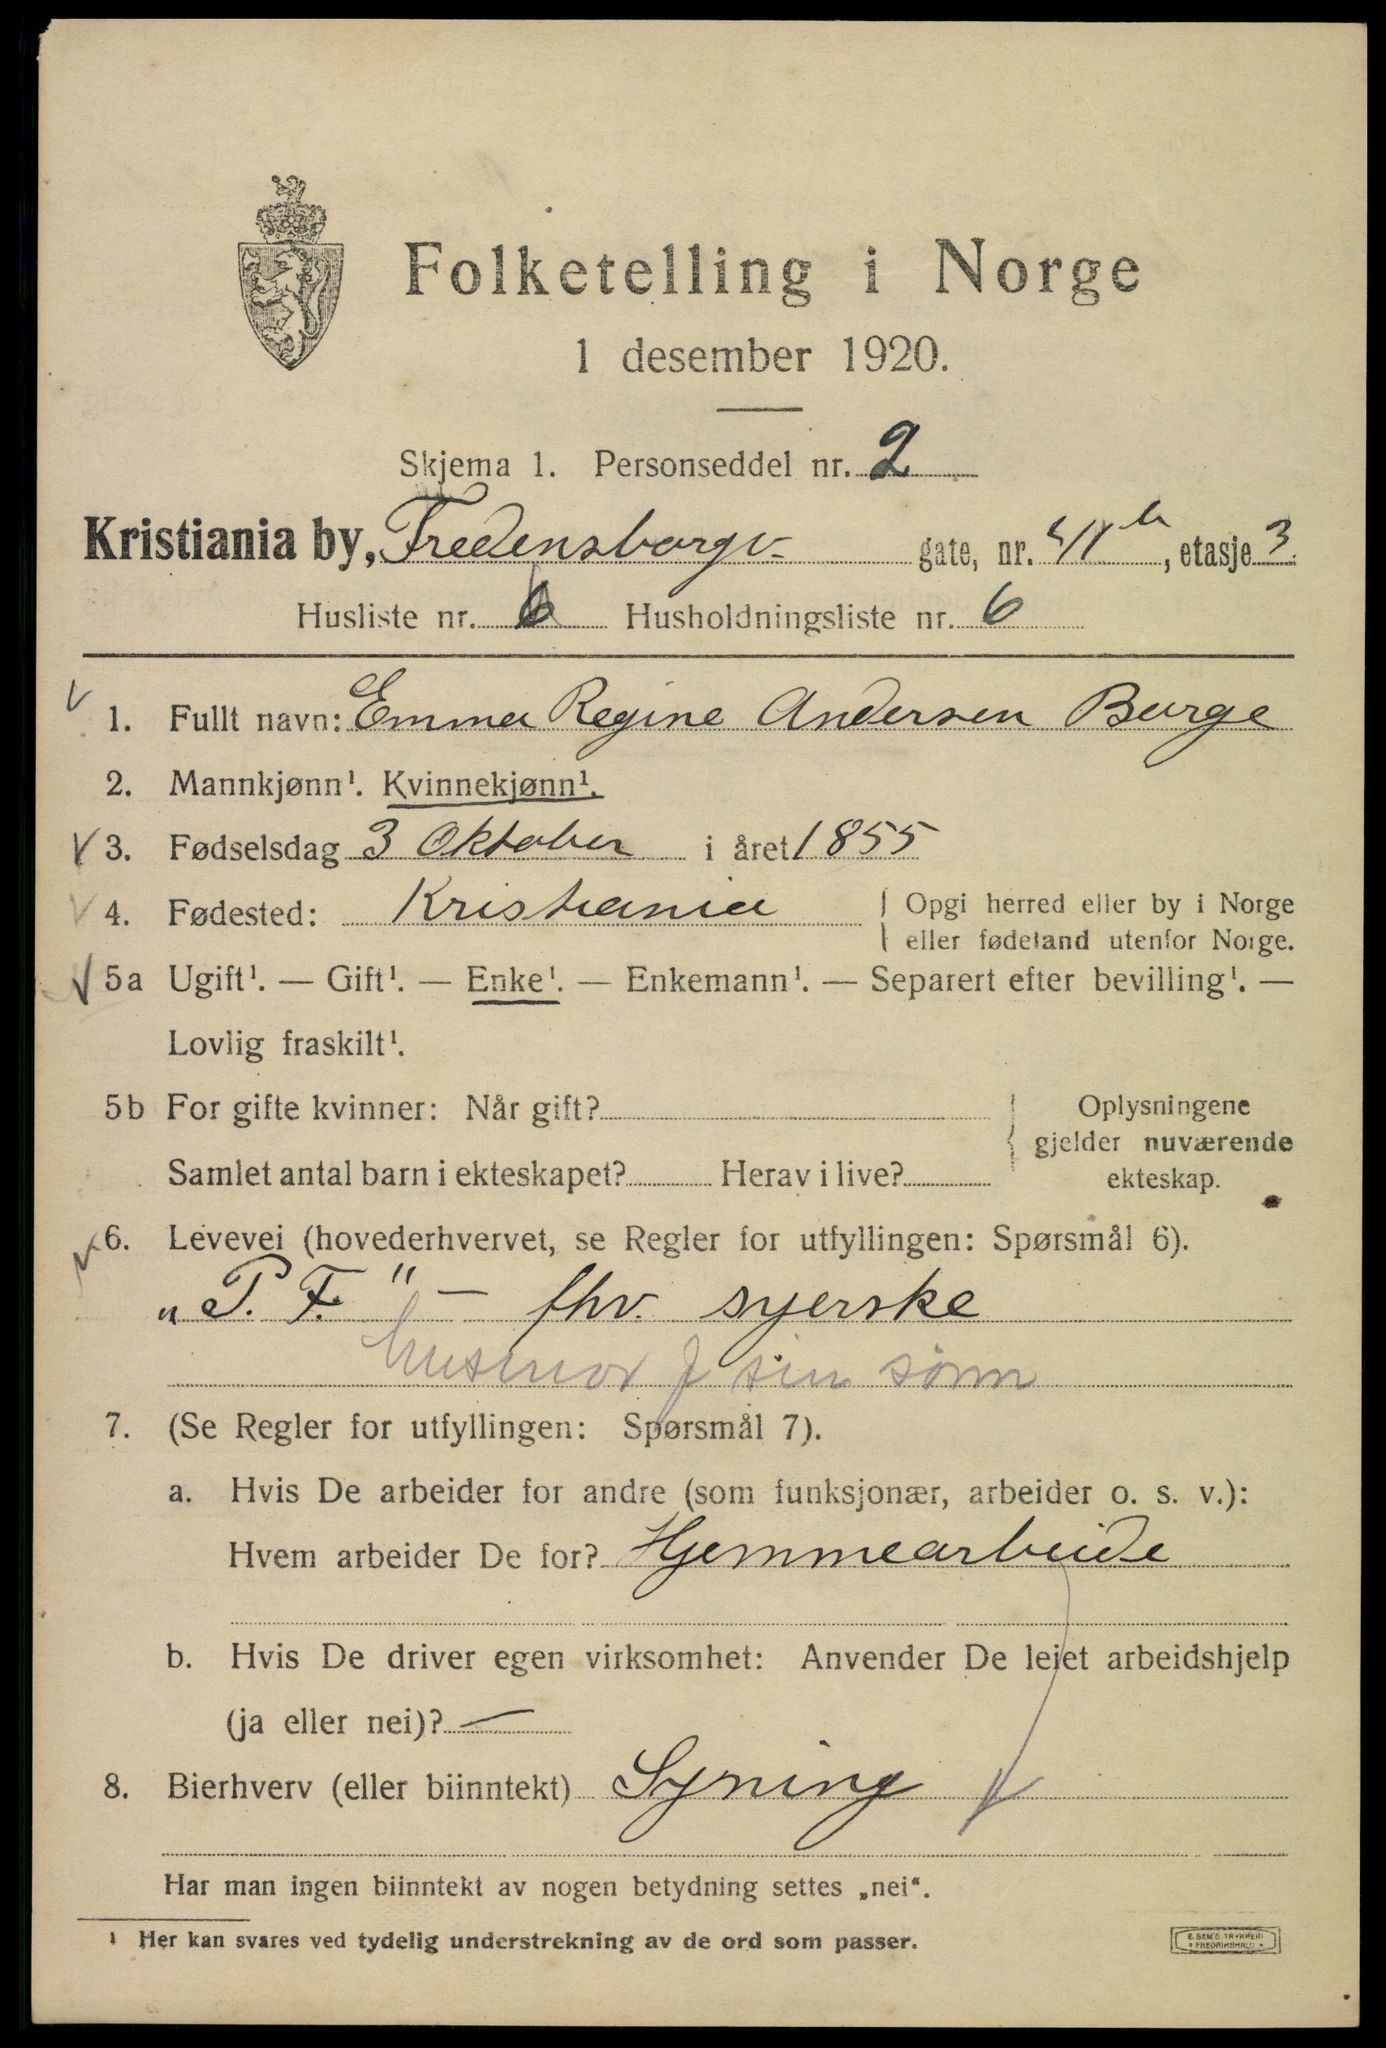 Folketelling i Norge
1 desember 1920.
Skjema 1. Personseddel nr. 2
Kristiania by, Fredensborgv. gate, nr. 41 b, etasje 3
Husliste nr. 6 Husholdningsliste nr. 6
1. Fullt navn: Emma Regine Andersen Borge
2. Mannkjønn¹. Kvinnekjønn¹.
3. Fødselsdag 3 Oktober i året 1855
4. Fødested: Kristiania
Opgi herred eller by i Norge
eller fødeland utenfor Norge.
5a Ugift¹. — Gift¹. — Enke¹. — Enkemann¹. — Separert efter bevilling¹. —
Lovlig fraskilt¹.
5b For gifte kvinner: Når gift?
Samlet antal barn i ekteskapet? Herav i live?
Oplysningene
gjelder nuværende
ekteskap.
6. Levevei (hovederhvervet, se Regler for utfyllingen: Spørsmål 6).
„P. F." — fhv. syerske
husmor f sin sønn
7. (Se Regler for utfyllingen: Spørsmål 7).
a. Hvis De arbeider for andre (som funksjonær, arbeider o. s. v.):
Hvem arbeider De for? Hjemmearbeide
b. Hvis De driver egen virksomhet: Anvender De leiet arbeidshjelp
(ja eller nei)? —
8. Bierhverv (eller biinntekt) Syning
Har man ingen biinntekt av nogen betydning settes „nei“.
¹ Her kan svares ved tydelig understrekning av de ord som passer.
E. SEM'S TRYKKERI
FREDRIKSHALD